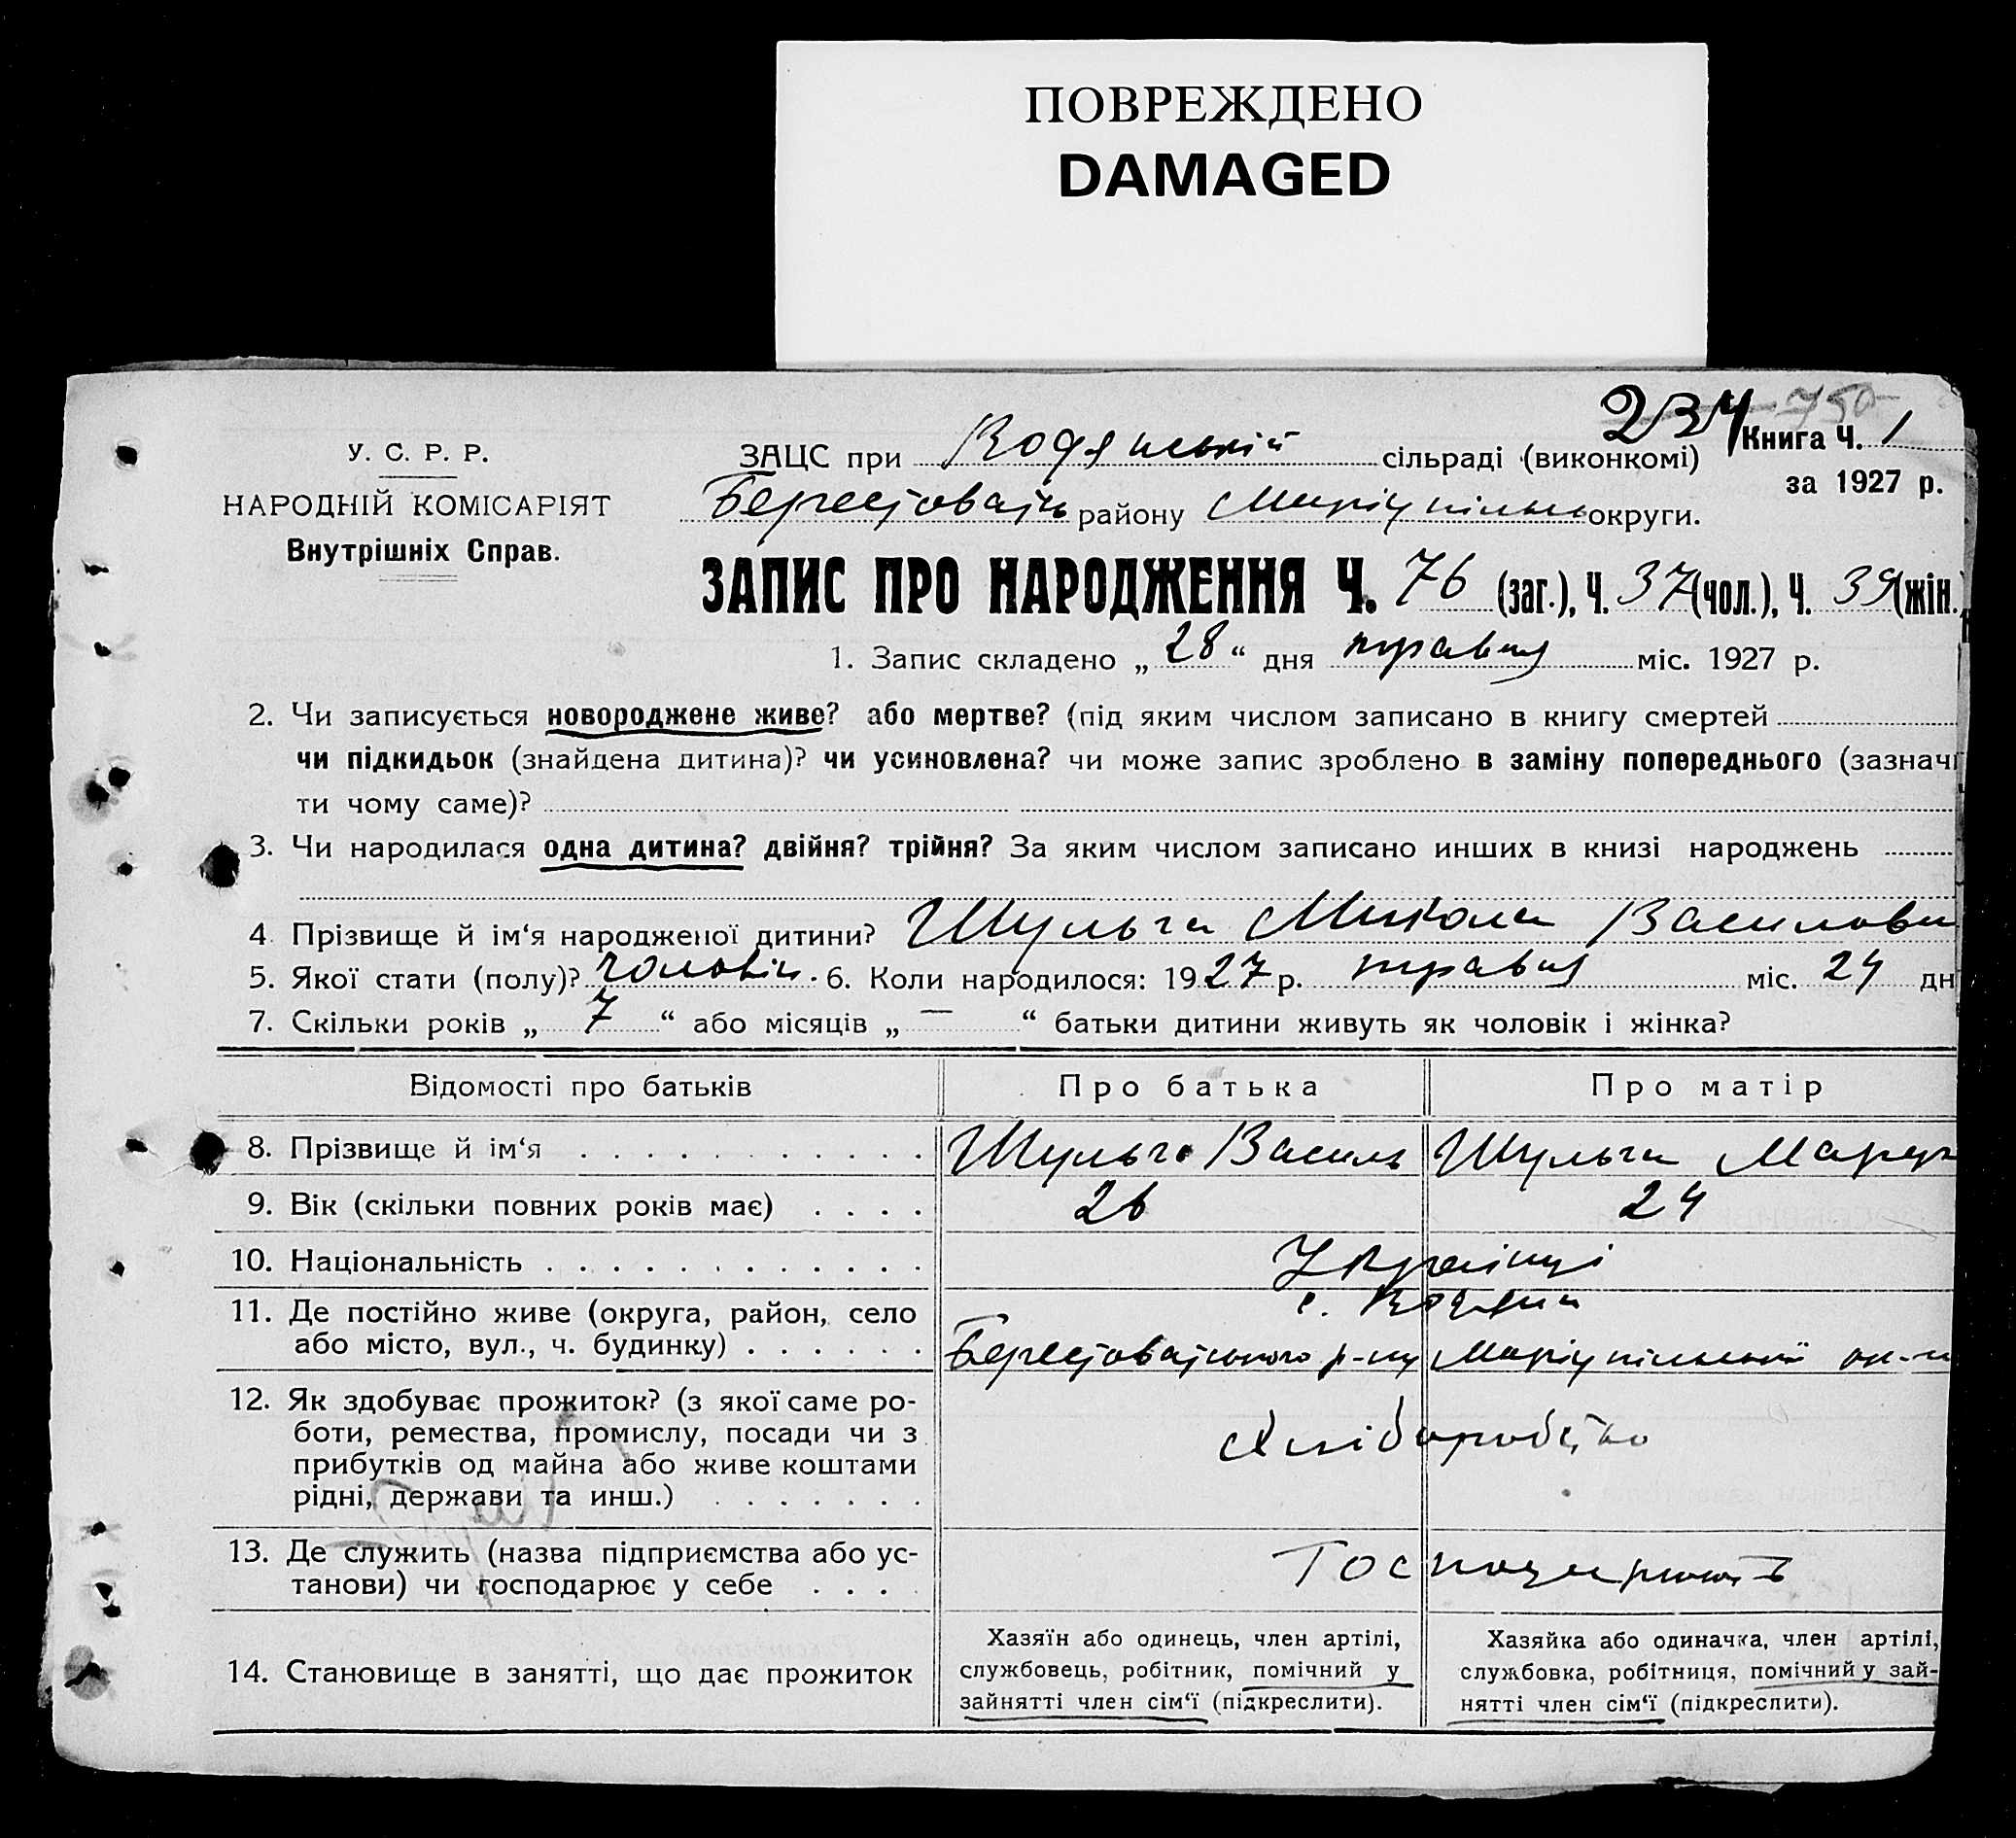 ПОВРЕЖДЕНО
DAMAGED
234 750
У. С. Р. Р.
НАРОДНІЙ КОМІСАРІЯТ
Внутрішніх Справ.
Книга Ч. 1
за 1927 р.
ЗАЦС при Водянській сільраді (виконкомі)
Берестоваць району Маріупільсь округи.
ЗАПИС ПРО НАРОДЖЕННЯ Ч. 76 (заг.), Ч. 37 (чол.), Ч. 39 (жін.)
1. Запис складено „ 28 “ дня травня міс. 1927 р.
2. Чи записується новороджене живе? або мертве? (під яким числом записано в книгу смертей
чи підкидьок (знайдена дитина)? чи усиновлена? чи може запис зроблено в заміну попереднього (зазначи
ти чому саме)?
3. Чи народилася одна дитина? двійня? трійня? За яким числом записано инших в книзі народжень
4. Прізвище й ім‘я народженої дитини? Шульга Микола Василови
5. Якої стати (полу)? чоловіч. 6. Коли народилося: 1927 р. травня міс. 24 дн
7. Скільки років „ 7 “ або місяців „ — “ батьки дитини живуть як чоловік і жінка?
Відомості про батьків Про батька Про матір
8. Прізвище й ім‘я Шульга Василь Шульга
9. Вік (скільки повних років має) 26 24
10. Національність Українці
11. Де постійно живе (округа, район, село
або місто, вул., ч. будинку) с. Водяна
Берестоватського р-ну Маріупільської ок-и
12. Як здобуває прожиток? (з якої саме ро-
боти, ремества, промислу, посади чи з
прибутків од майна або живе коштами
рідні, держави та инш.) Хліборобство
13. Де служить (назва підприємства або ус-
танови) чи господарює у себе Господарюють
14. Становище в занятті, що дає прожиток
Хазяїн або одинець, член артілі,
службовець, робітник, помічний у
зайнятті член сім‘ї (підкреслити).
Хазяйка або одиначка, член артілі,
службовка, робітниця, помічний у зай-
нятті член сім‘ї (підкреслити).